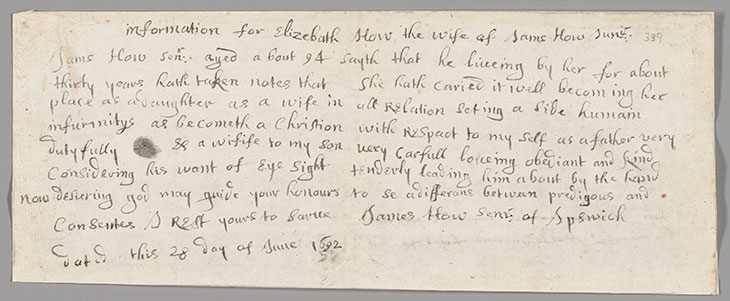 information for Elizebath How the wife of Jams How Junr. 339
Jams How senr. aged about 94 sayth that he liueing by her for about
thirty years hath taken notes that she hath caried it well becoming her
place as a daughter as a wife in all Relation seting a side humain
infurmitys as becometh a Christion with Respact to my self as a father very
dutyfully & a wifife to my son uery Carfull loueing obediant and kind
Considering his want of eye sight tenderly leading him about by the hand
now desiering god may guide your honours to se a differans between predigous and
Consentes I Rest yours to Sarue James How senr. of Ipswich
dated this 28 day of June 1692